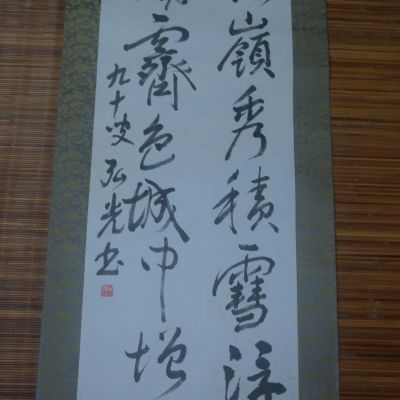 嶺秀積雪浮
霽色城中增
九十叟 弘光書